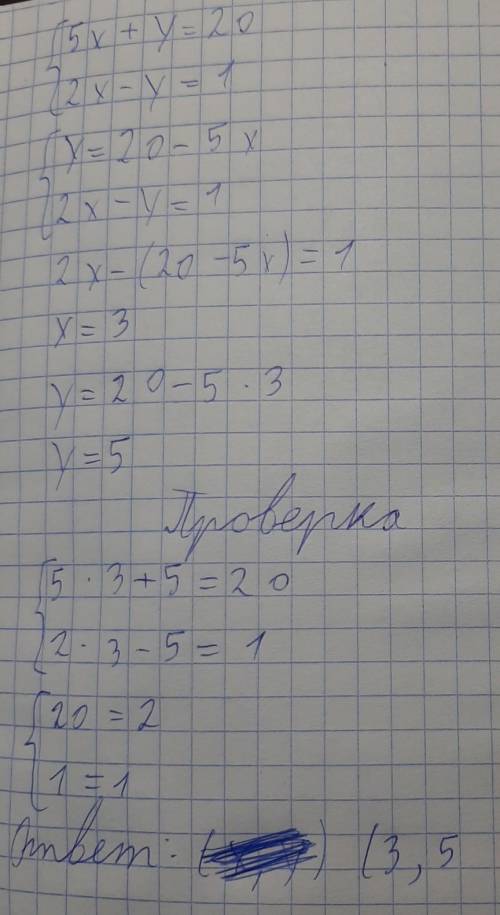 5x + y = 20
2x - y = 1
y = 20 - 5x
2x - y = 1
2x - (20 - 5x) = 1
x = 3
y = 20 - 5 · 3
y = 5
Проверка
5 · 3 + 5 = 20
2 · 3 - 5 = 1
20 = 2
1 = 1
Ответ: (3, 5